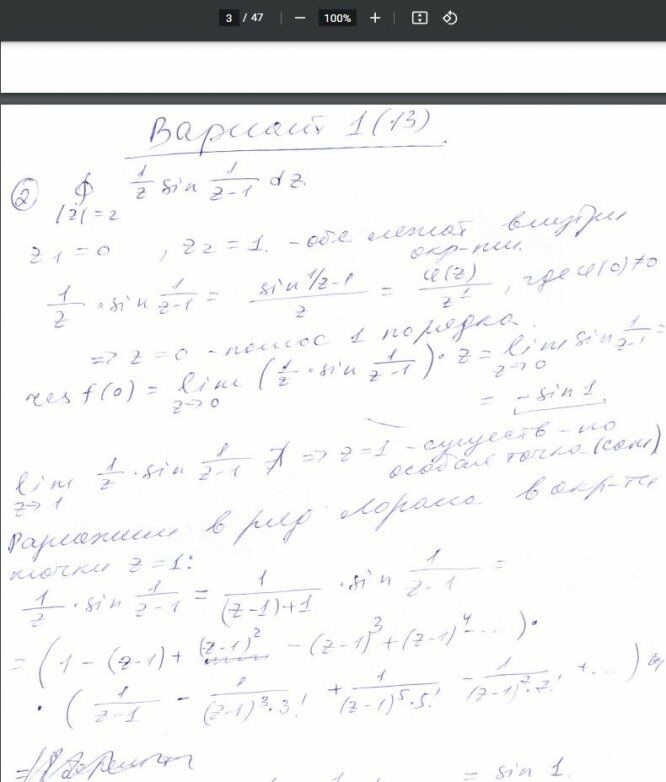 3 / 47 100%
Вариант 1(13)
② ∮ 1/z sin 1/(z-1) dz.
|z|=2
z₁=0 , z₂=1. - обе лежат внутри
окр-ти.
1/z · sin 1/(z-1) = sin 1/z-1 / z = φ(z)/z¹ , где φ(0)≠0
=> z=0 - полюс 1 порядка.
res f(0) = lim z→0 (1/z · sin 1/(z-1)) · z = lim z→0 sin 1/(z-1) =
= -sin 1.
lim z→1 1/z · sin 1/(z-1) ∄ => z=1 - существ-но
особая точка (сот)
Разложим в ряд Лорана в окр-ти
точки z=1:
1/z · sin 1/(z-1) = 1/((z-1)+1) · sin 1/(z-1) =
= (1 - (z-1) + (z-1)² - (z-1)³ + (z-1)⁴ - ...) ·
· (1/(z-1) - 1/((z-1)³·3!) + 1/((z-1)⁵·5!) - 1/((z-1)⁷·7!) + ...)
= sin 1.